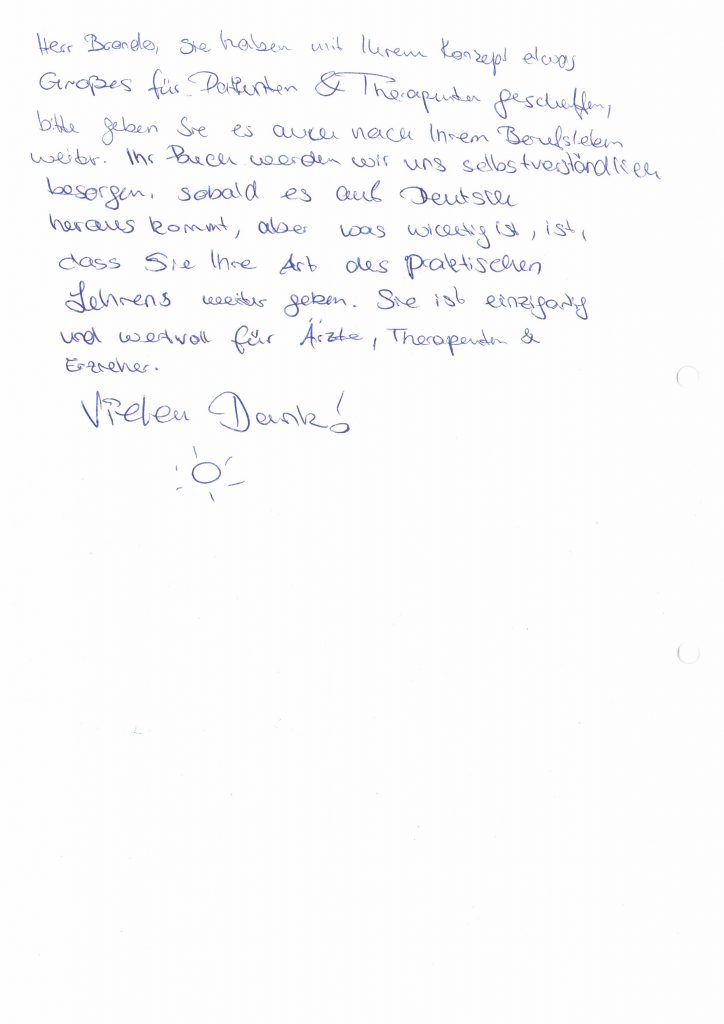 Herr Brando, Sie haben mit Ihrem Konzept etwas
Großes für Patienten & Therapeuten geschaffen,
bitte geben Sie es auch nach Ihrem Berufsleben
weiter. Ihr Buch werden wir uns selbstverständlich
besorgen, sobald es auf Deutsch
heraus kommt, aber was wichtig ist, ist,
dass Sie Ihre Art des praktischen
Lehrens weiter geben. Sie ist einzigartig
und wertvoll für Ärzte, Therapeuten &
Erzieher.
Vielen Dank!